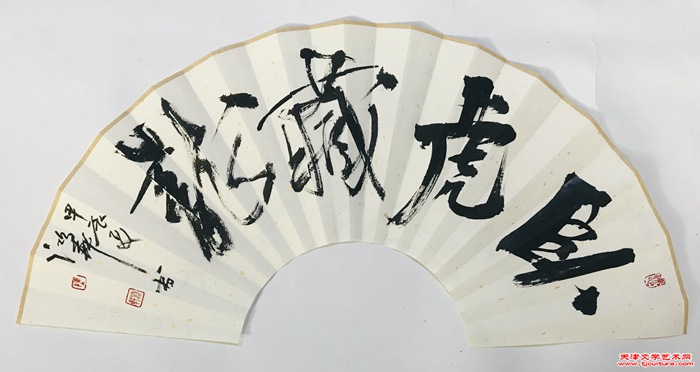 卧虎藏龍
甲辰夏
天津文学艺术网
www.tjculture.com